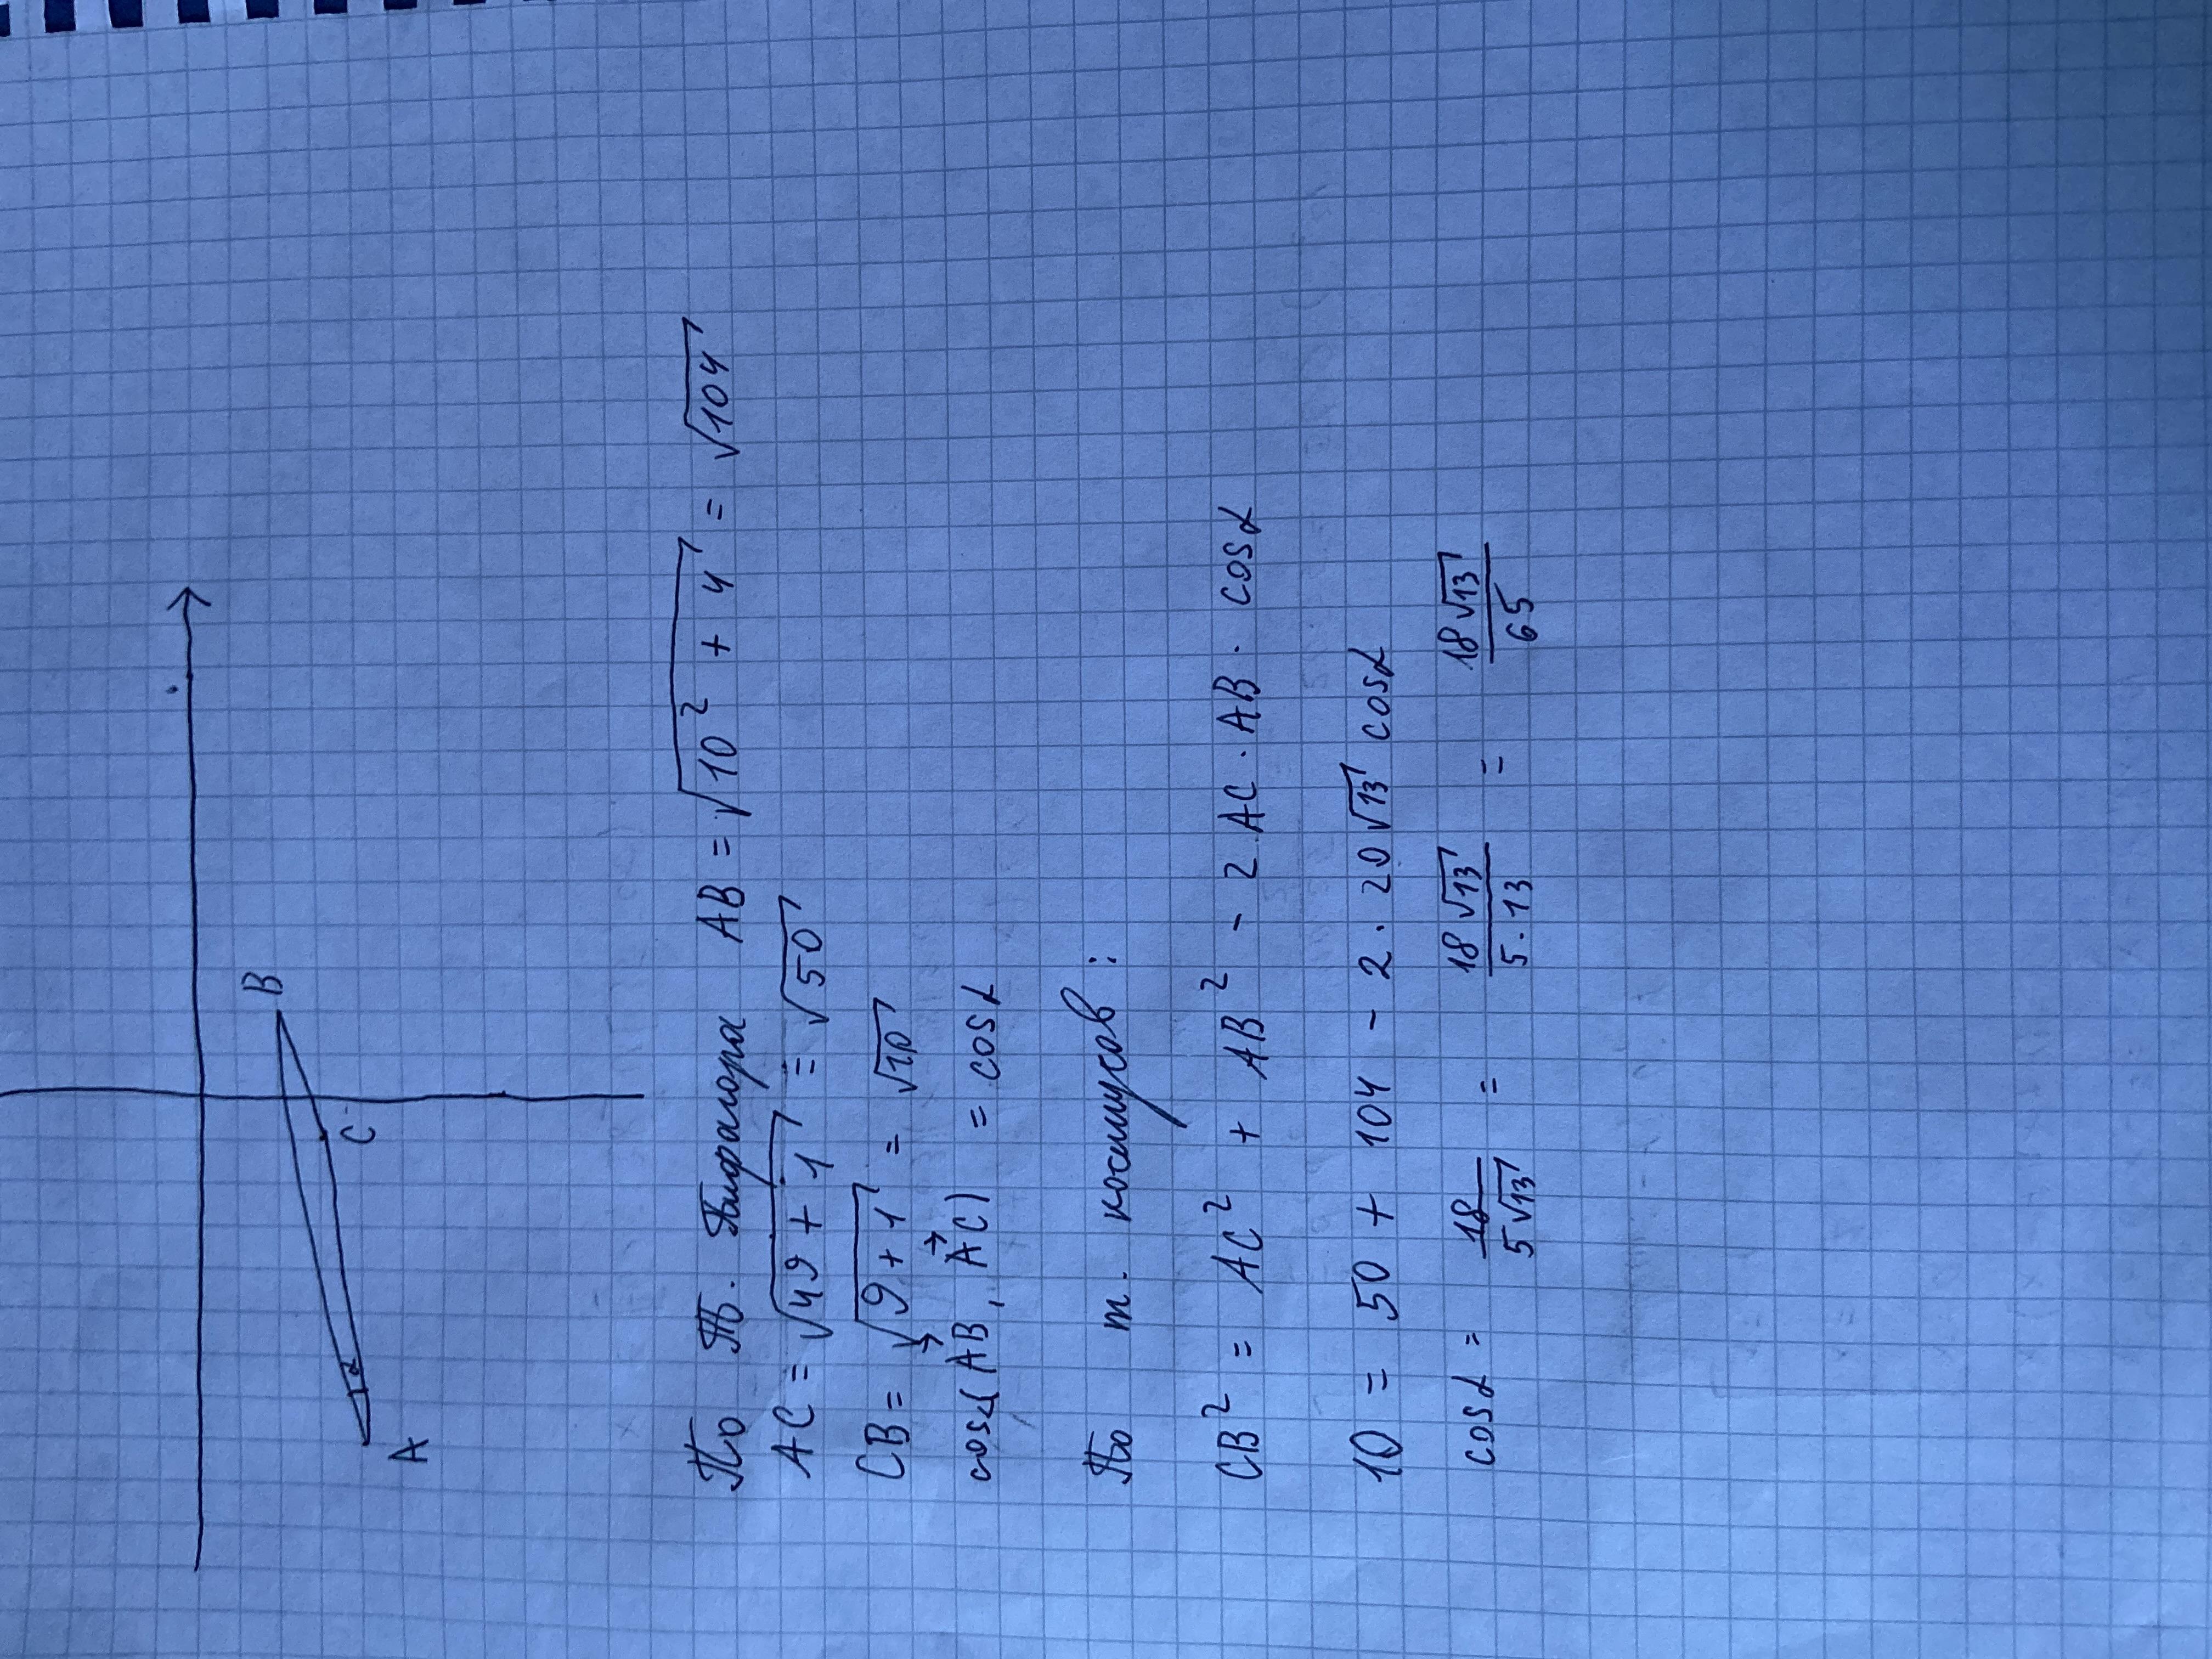 B
C
α
A
По Т. Пифагора AB = √(10² + 4) = √104
AC = √(49 + 1) = √50
CB = √(9 + 1) = √10
cos∠(AB, AC) = cosα
По т. косинусов :
CB² = AC² + AB² - 2 AC · AB · cosα
10 = 50 + 104 - 2 · 20√13 cosα
cosα = 18/5√13 = 18√13/5·13 = 18√13/65